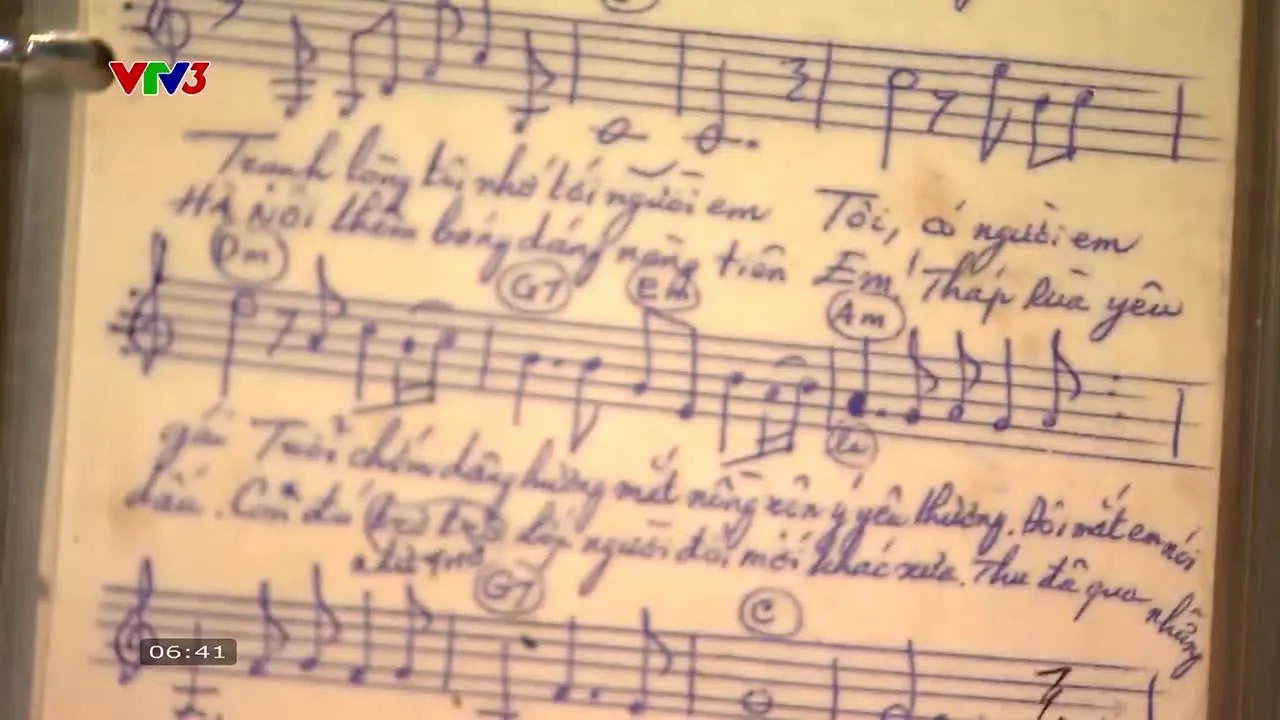 VTV3
Tranh lòng tôi nhớ tới người em Tôi, có người em
HÀ NỘI thêm bóng dáng nàng tiên Em! Tháp Rùa yêu
Dm G7 Em Am
gái Tuổi chớm dâng hương mắt nồng rộn ý yêu thương. Đôi mắt em nói
dấu. Còn đó lớp người đổi mới khác xưa. Thu đã qua những
G7 C
06:41